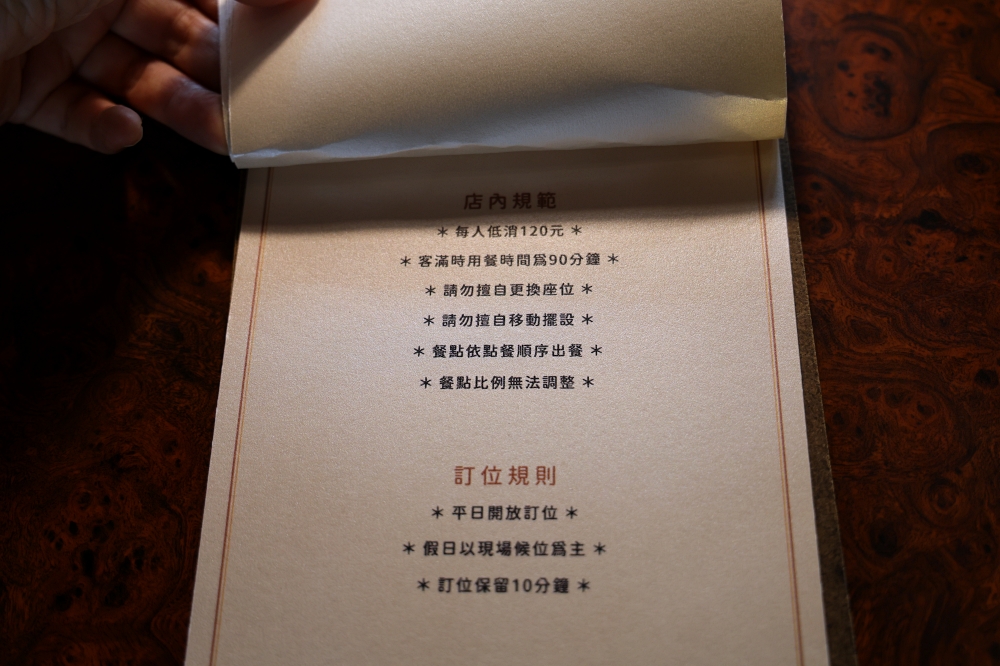 店內規範
＊ 每人低消120元 ＊
＊ 客滿時用餐時間為90分鐘 ＊
＊ 請勿擅自更換座位 ＊
＊ 請勿擅自移動擺設 ＊
＊ 餐點依點餐順序出餐 ＊
＊ 餐點比例無法調整 ＊
訂位規則
＊ 平日開放訂位 ＊
＊ 假日以現場候位為主 ＊
＊ 訂位保留10分鐘 ＊